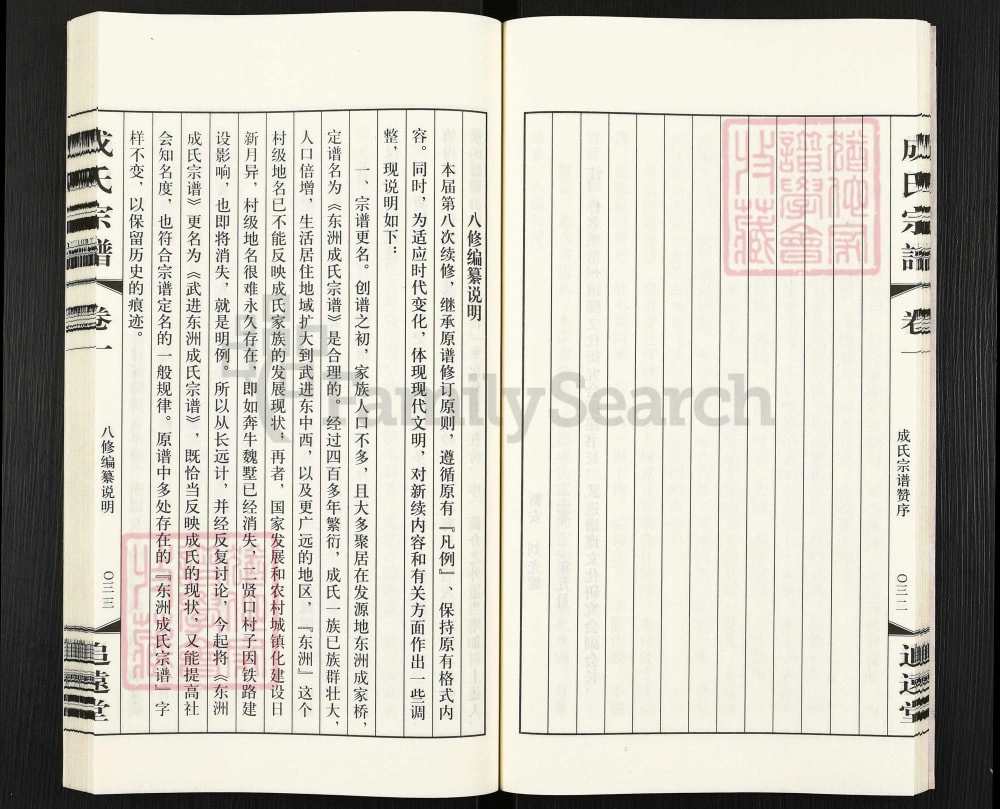 成氏宗谱
卷一
成氏宗谱赞序
〇三二
追远堂
八修编纂说明
本届第八次续修，继承原谱修订原则，遵循原有『凡例』、保持原有格式内
容。同时，为适应时代变化，体现现代文明，对新续内容和有关方面作出一些调
整，现说明如下：
一、宗谱更名。创谱之初，家族人口不多，且大多聚居在发源地东洲成家桥，
定谱名为《东洲成氏宗谱》是合理的。经过四百多年繁衍，成氏一族已族群壮大，
人口倍增，生活居住地域扩大到武进东中西，以及更广远的地区，『东洲』这个
村级地名已不能反映成氏家族的发展现状，再者，国家发展和农村城镇化建设日
新月异，村级地名很难永久存在，即如奔牛魏墅已经消失，二贤口村子因铁路建
设影响，也即将消失，就是明例。所以从长远计，并经反复讨论，今起将《东洲
成氏宗谱》更名为《武进东洲成氏宗谱》，既恰当反映成氏的现状，又能提高社
会知名度，也符合宗谱定名的一般规律。原谱中多处存在的『东洲成氏宗谱』字
样不变，以保留历史的痕迹。
成氏宗谱
卷一
八修编纂说明
〇三三
追遠堂
FamilySearch